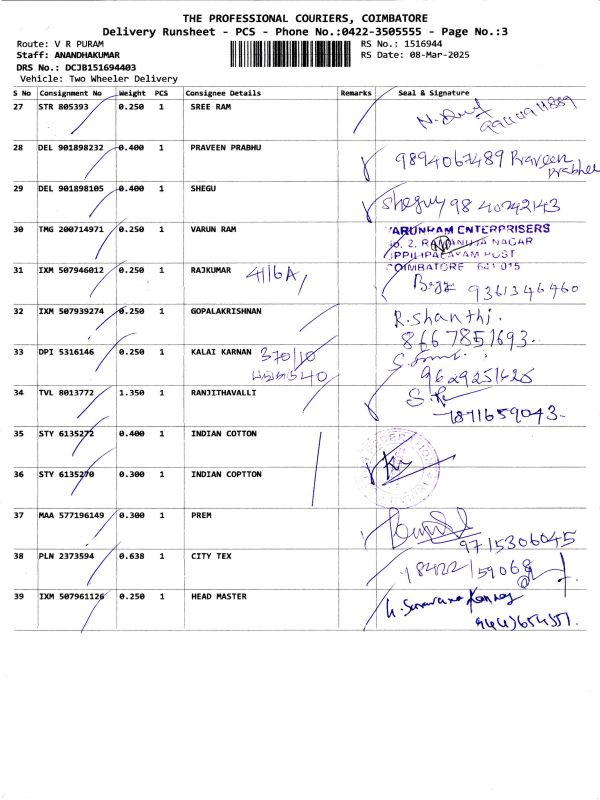 THE PROFESSIONAL COURIERS, COIMBATORE
Delivery Runsheet - PCS - Phone No.:0422-3505555 - Page No.:3
Route: V R PURAM
RS No.: 1516944
Staff: ANANDHAKUMAR
RS Date: 08-Mar-2025
DRS No.: DCJB151694403
Vehicle: Two Wheeler Delivery
S No Consignment No Weight PCS Consignee Details Remarks Seal & Signature
27 STR 805393 0.250 1 SREE RAM
28 DEL 901898232 0.400 1 PRAVEEN PRABHU 9894067489 Praveen
Prabhu
29 DEL 901898105 0.400 1 SHEGU sheguy 9840742143
30 TMG 200714971 0.250 1 VARUN RAM VARUNRAM ENTERPRISERS
No. 2, RAMANUJA NAGAR
UPPILIPALAYAM POST
COIMBATORE 641 015
31 IXM 507946012 0.250 1 RAJKUMAR 4116A, 9361346460
32 IXM 507939274 0.250 1 GOPALAKRISHNAN R.shanthi.
8667851693.
33 DPI 5316146 0.250 1 KALAI KARNAN 370/10
9629251625
34 TVL 8013772 1.350 1 RANJITHAVALLI
7871659043-
35 STY 6135272 0.400 1 INDIAN COTTON
36 STY 6135270 0.300 1 INDIAN COPTTON
37 MAA 577196149 0.300 1 PREM
9715306045
38 PLN 2373594 0.638 1 CITY TEX
39 IXM 507961126 0.250 1 HEAD MASTER